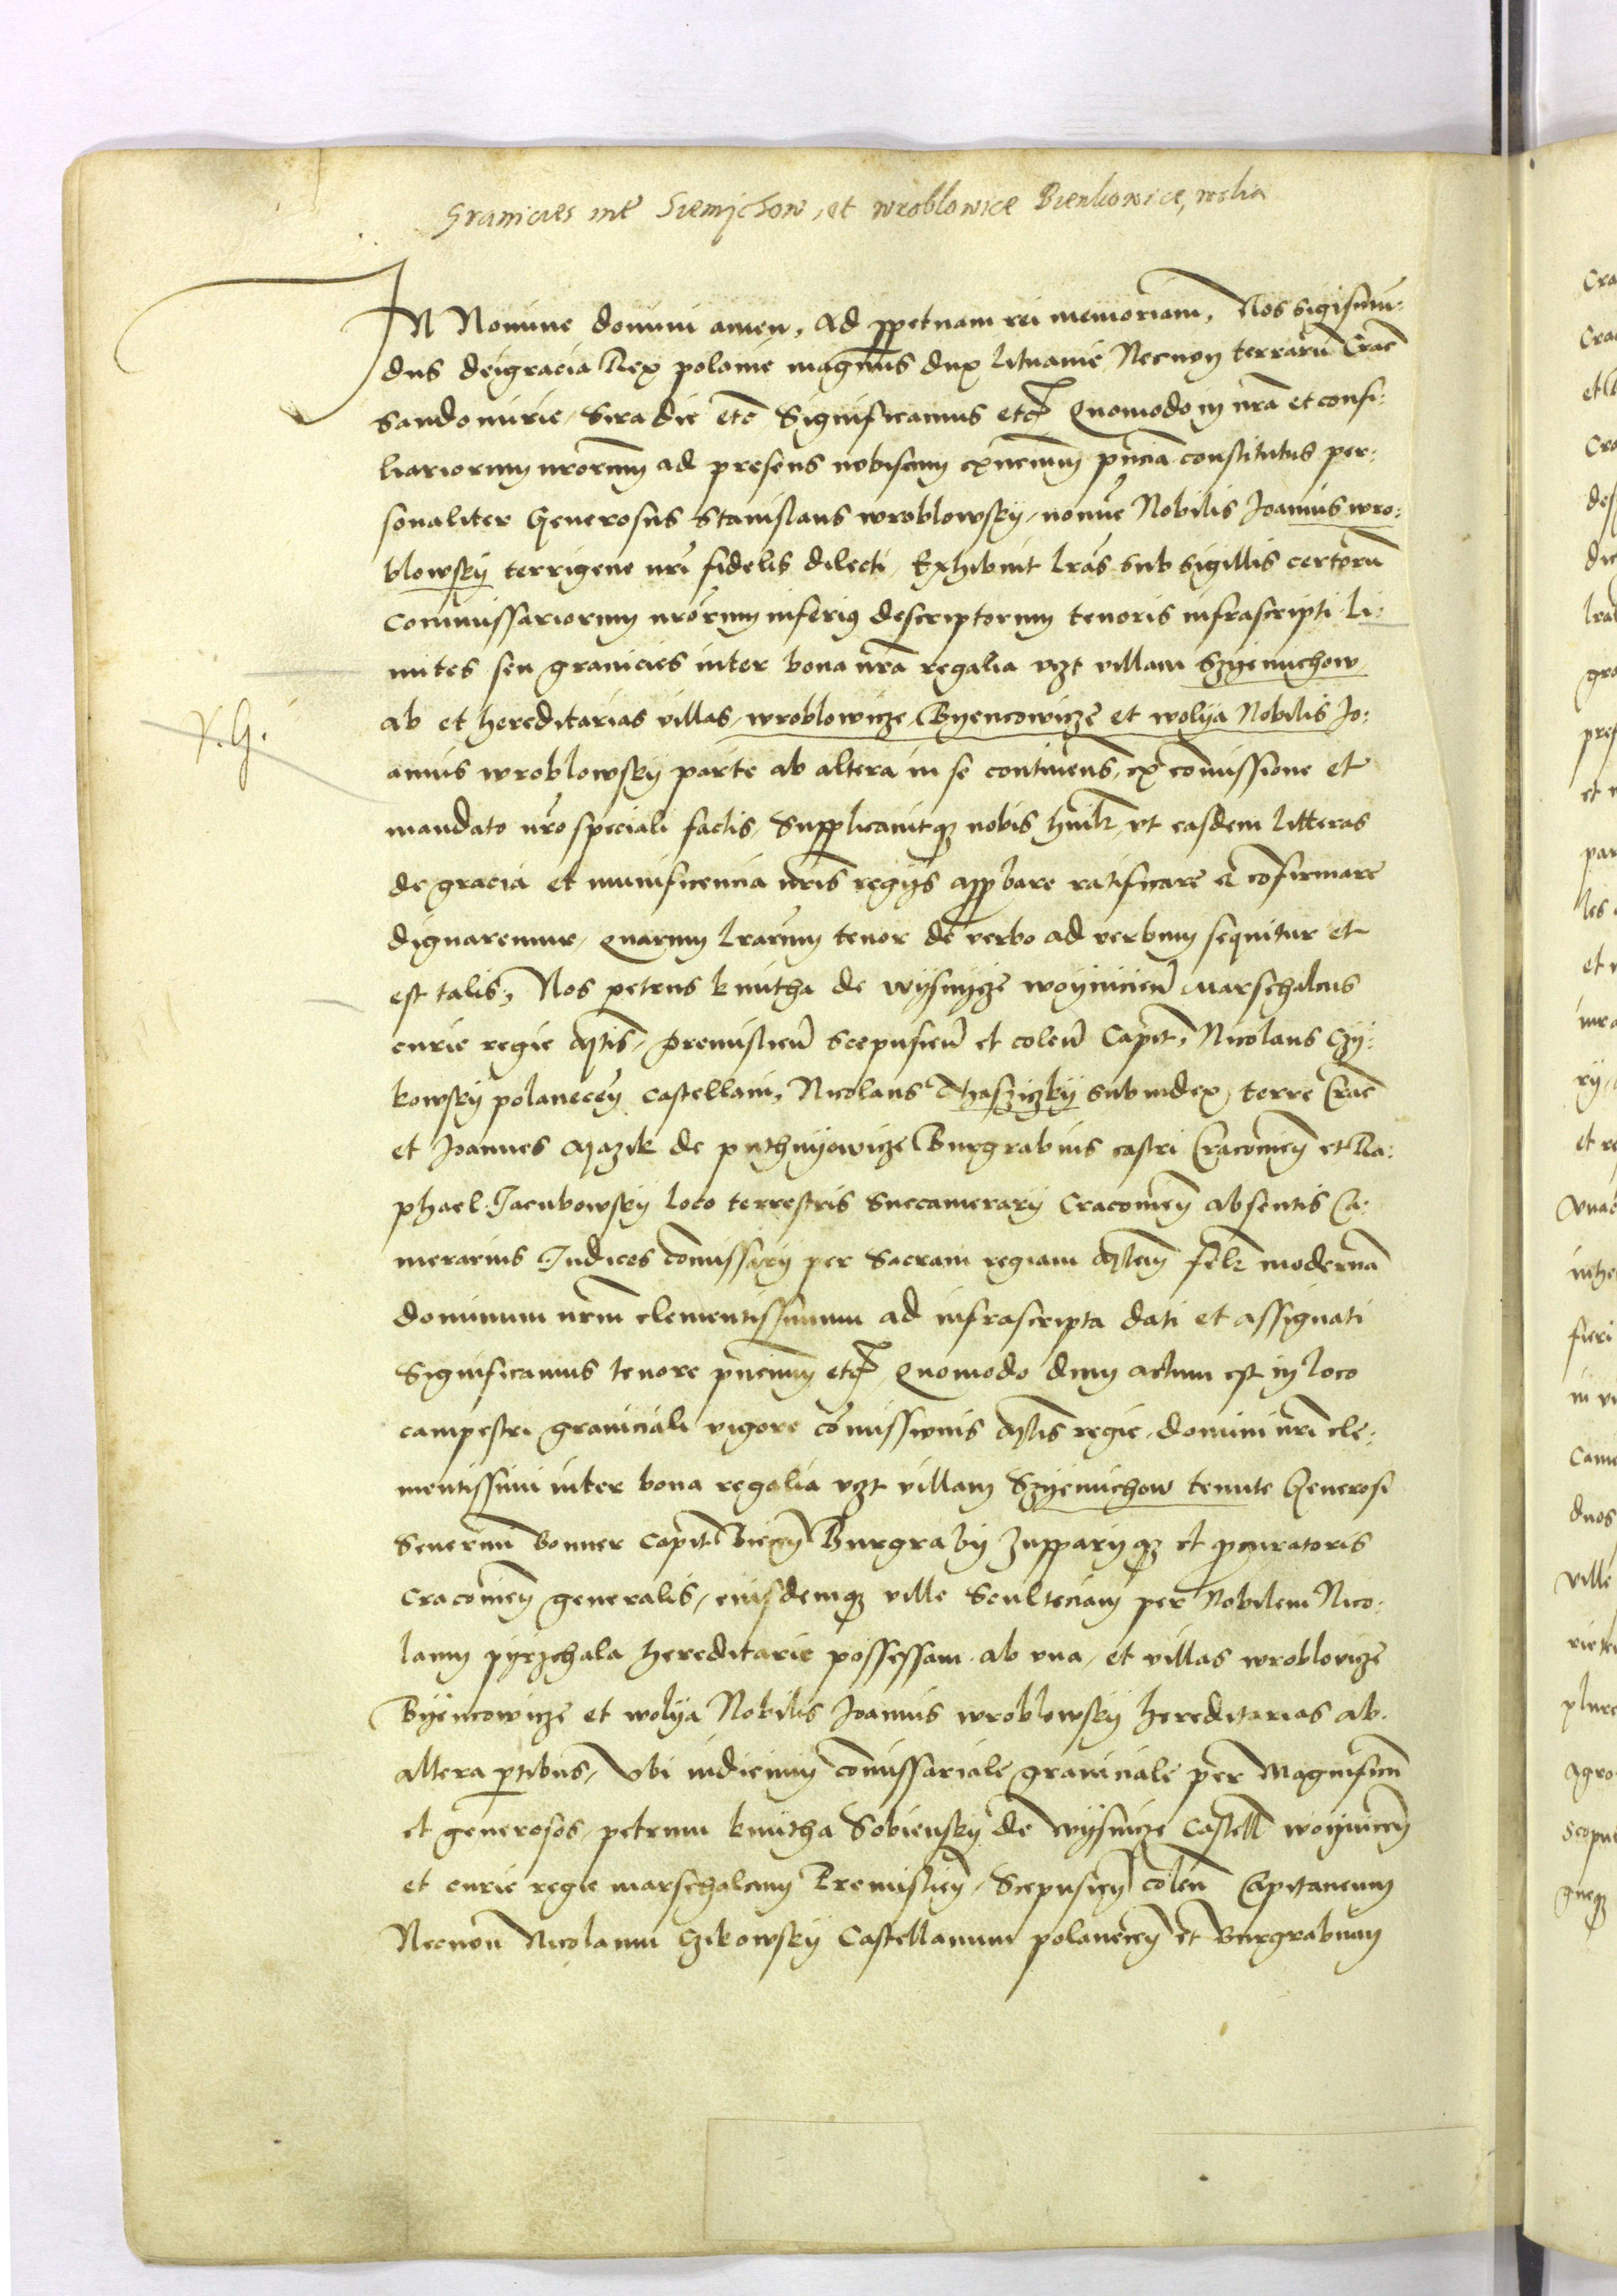 Granicies inter Siemichow, et wroblowice Bienkowice, wolia
IN Nomine domini amen, Ad perpetuam rei memoriam, Nos Sigismun:
dus deigracia Rex polonie magnus dux lituanie, Necnon terrarum Crac
Sandomirie, Siradie etc Significamus etc Quomodo in nrã et consi:
liariorum nrõrum ad presens nobiscum existencium pñcia constitutus per:
sonaliter Generosus Stanislaus wroblowsky, nomine Nobilis Joannis wro:
blowsky terrigene nrĩ fidelis dilecti, Exhibuit lras sub sigillis certorũ
Commissariorum nrõrum inferius descriptorum tenoris infrascripti Li:
mites seu granicies inter bona nrã regalia vzt villam Szyemichow
ab et hereditarias villas, wroblowicze, Byencowicze et wolya Nobilis Jo:
annis wroblowsky parte ab altera in se continens, ex comissione et
mandato nrõ speciali factis, Supplicavitque nobis humilr, vt easdem litteras
de gracia et munificencia nrĩs regijs approbare ratificare et confirmare
dignaremur, Quarum lrarum tenor de verbo ad verbum sequitur et
est talis, Nos petrus kmitha de wysnycze woynicien Marschalcus
curie regie Mtis, Premislien Scepusien et colen Capit, Nicolaus Czy:
kowsky polanecen castellani, Nicolaus Thaszyczky subiudex terre Crac
et Joannes Mazik de puthnyowicze Burgrabius castri Cracovien et Ra:
phael Jacubowsky loco terrestris Succamerarij Cracovien absentis Ca:
merarius Judices comissarij per Sacram regiam Mtem felr modernã
dominum nrm clementissimum ad infrascripta dati et assignati
Significamus tenore pñcium etc, Quomodo dum actum est in loco
campestri graniciali vigore comissionis Mtis regie, domini nrĩ cle:
mentissimi inter bona regalia vzt villam Szyemichow tenute Generosi
Severini bonner Capit Biecen Burgrabij Zupparijque et procuratoris
Cracovien generalis, eiusdemque ville Scultetiam per Nobilem Nico:
laum pyrzchala hereditarie possessam ab vna, et villas wroblovicze
Byencowicze et wolya Nobilis Joannis wroblowsky hereditarias ab
altera partibus, Vbi iudicium comissariale graniciale per Magnificũ
et generosos, petrum kmitha Sobiensky de wysnicze Castell woynicen
et curie regie marschalcum Premislien, Scepusien colen Capitaneum
Necnon Nicolaum Czikowsky Castellanum polanecen et Burgrabium